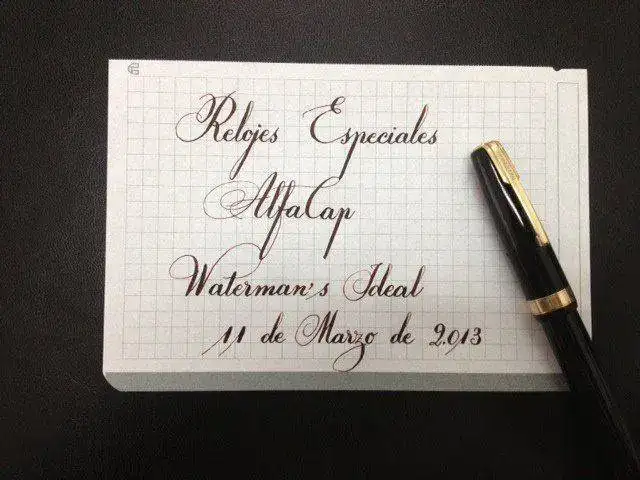 Relojes Especiales
AlfaCap
Waterman's Ideal
11 de Marzo de 2.013